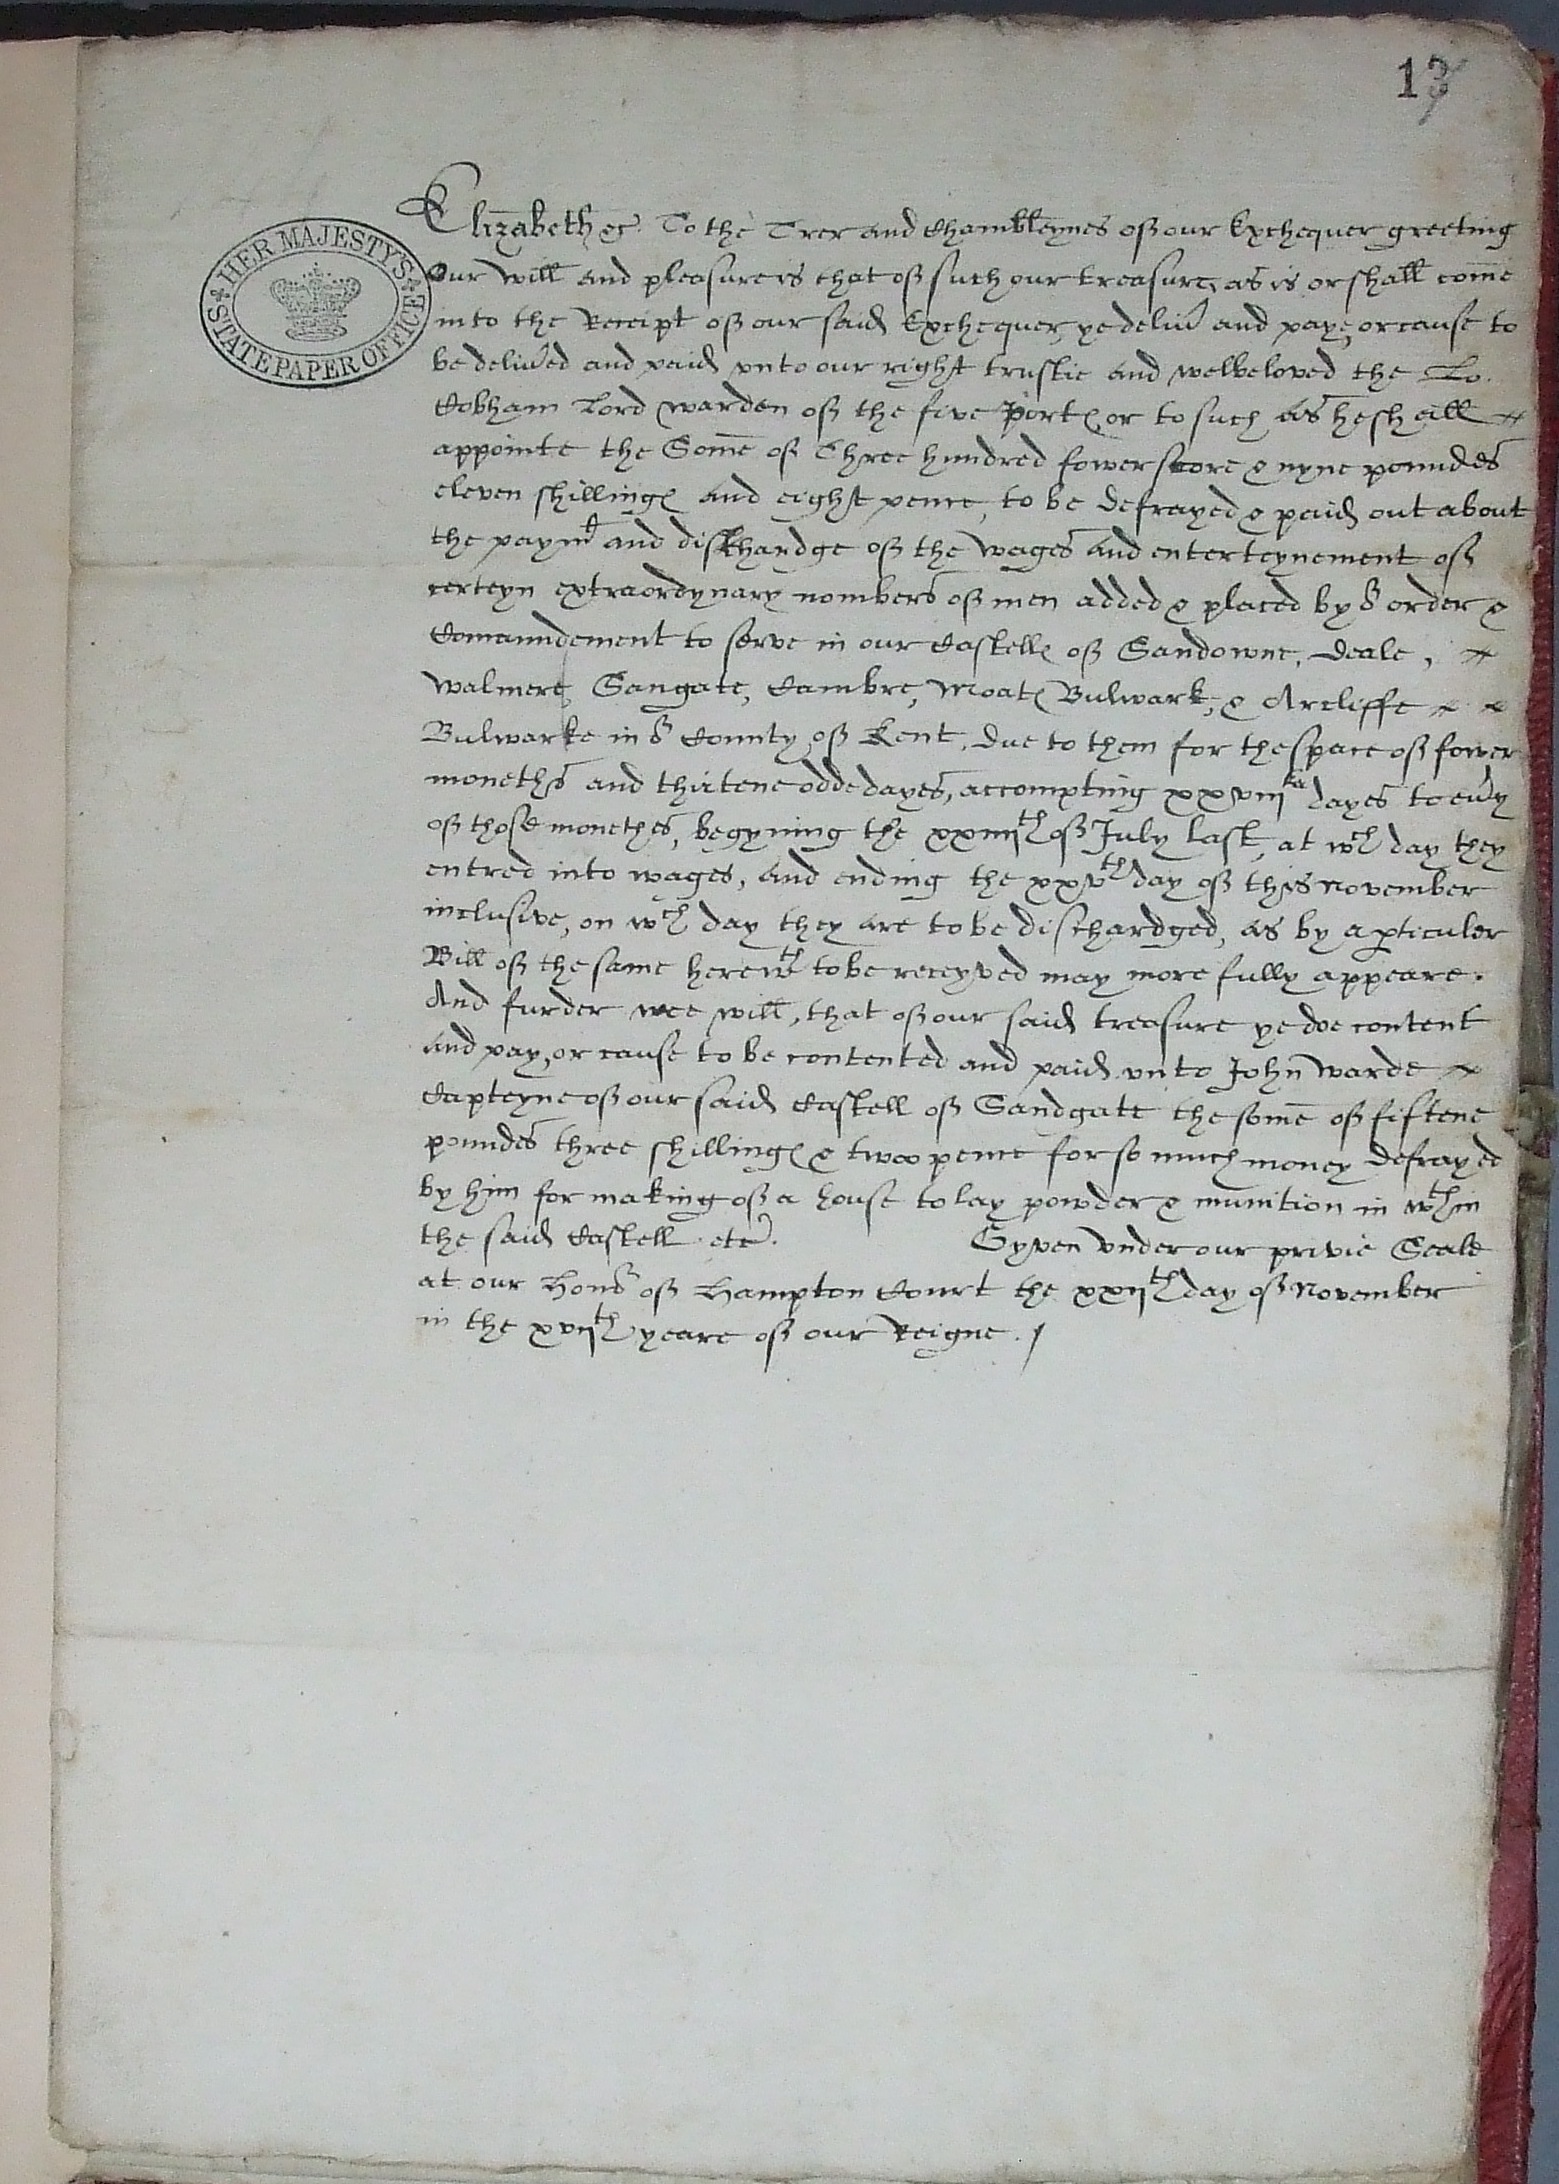 13
HER MAJESTY'S
STATE PAPER OFFICE
Elizabeth &c. To the Trer and Chambleynes of our Exchequer greeting
Our will and pleasure is that of such our treasure, as is or shall come
into the Receipt of our said Exchequer, ye deliu' and paye, or cause to
be deliu'ed and paid vnto our right trustie and welbeloved the Lo.
Cobham Lord warden of the five Portes, or to such as he shall
appointe the Some of Three hundred fower score & nyne poundes
eleven shillinges and eight pence, to be defrayed & paid out about
the paymt and dischardge of the wages and enterteynement of
certeyn extraordynary nombers of men added & placed by or order &
Comaundement to serve in our Castelles of Sandowne, Deale,
Walmere, Sangate, Cambre, Moates Bulwark, & Arcliffe
Bulwarke in or County of Kent, due to them for the space of fower
moneths and thirtene odde dayes, accompting xxviijtie dayes to eu'y
of those monethes, begyning the xxiiijth of July last, at wch day they
entred into wages, and ending the xxvth day of this November
inclusive, on wch day they are to be dischardged, as by a p'ticuler
Bill of the same herewth to be receyved may more fully appeare.
And furder wee will, that of our said treasure ye doe content
and pay, or cause to be contented and paid vnto John Warde
Capteyne of our said Castell of Sandgate the some of fiftene
poundes three shillinges & twoo pence for so much money defrayed
by him for making of a house to lay powder & munition in wthin
the said Castell. etc. Gyven vnder our privie Seale
at our Honor of Hampton Court the xxijth day of November
in the xvijth yeare of our Reigne.